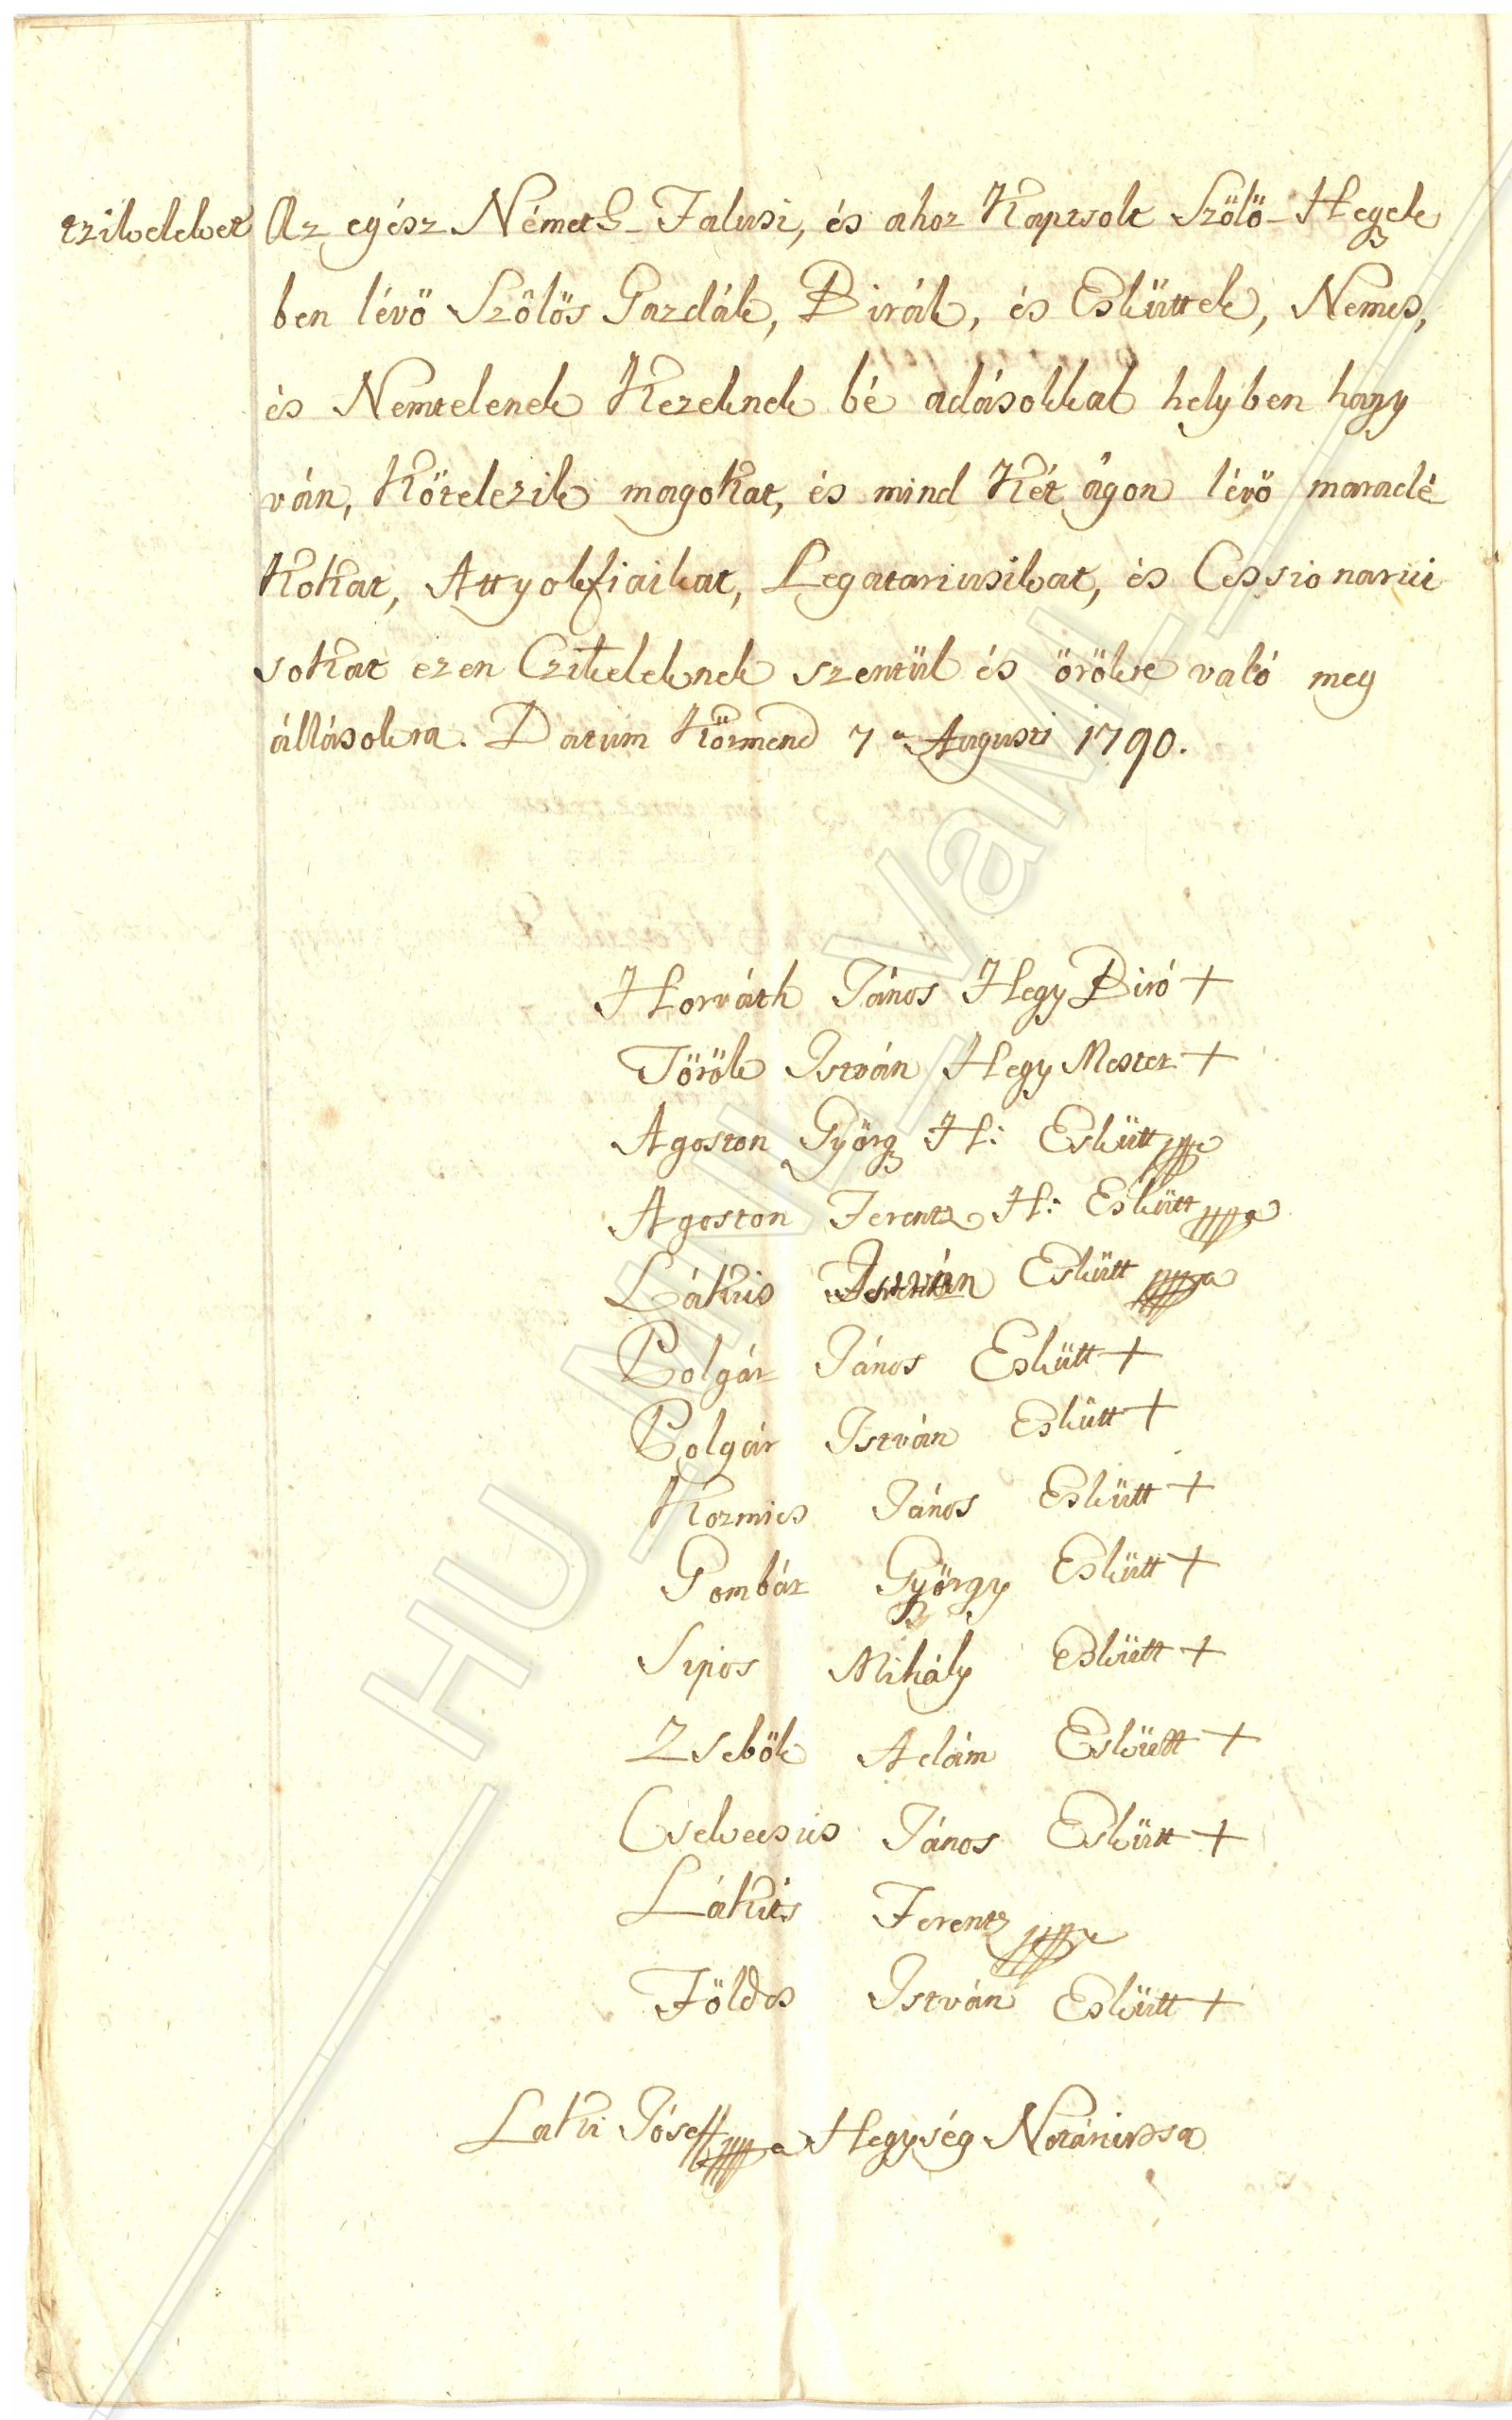 czikelket Az egész Németh-Falusi, és ahoz Kaptsolt Szőlő-Hegyek
ben lévő Szőlős Gazdák, Birák, és Esküttek, Nemes,
és Nemtelenek Kezeknek bé adásokkal helyben hagy
ván, Kötelezik magokat, és mind Két ágon lévő maradé
Kokat, Attyokfiaikat, Legatariusikat, és Cessionariu
sokat ezen Czikeleknek szentül és örökre való meg
állásokra. Datum Körmend 7a Augusti 1790.
Horváth János Hegy Biró +
Török István Hegy Mester +
Agoston György H: Eskütt mpa
Agoston Ferentz H: Eskütt mpa
Lákits István Eskütt mpa
Polgár János Eskütt +
Polgár István Eskütt +
Kozmics János Eskütt +
Gombár György Eskütt +
Sipos Mihály Eskütt +
Zsebök Adám Eskütt +
János Eskütt +
Lákits Ferentz mpa
Földes István Eskütt +
Laki Jósef mpa Hegység Notáriussa
HU MNL VaML